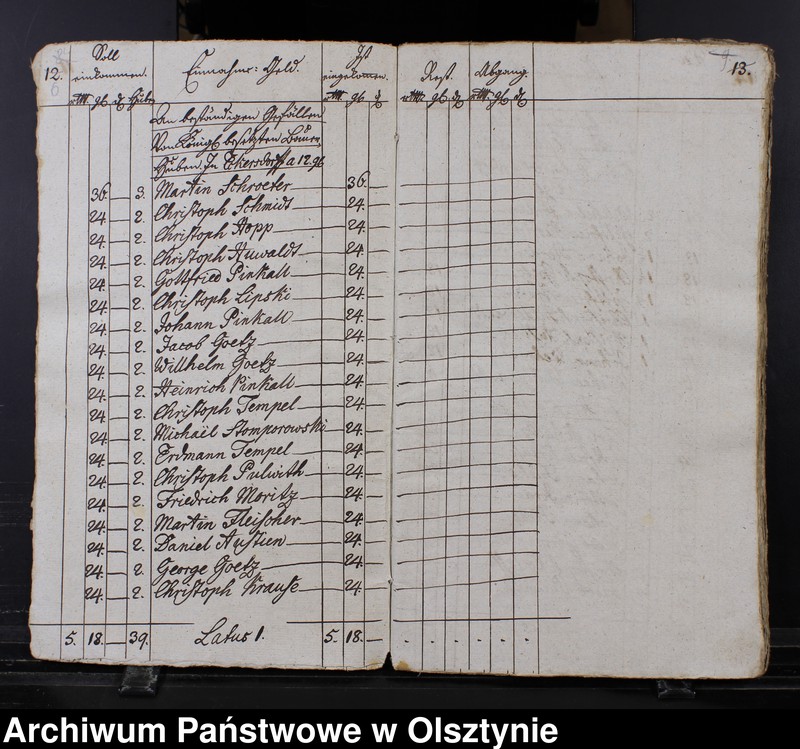 12. Soll einkommen. Einnahme: Geld. Ist eingekommen. Rest. Abgang. 13.
rtl. gl. d. Hub. rtl. gl. d. rtl. gl. d. rtl. gl. d.
An beständigen Gefällen
Von Königl. besetzten Bauer
Huben. In Eckersdorff a 12. gl.
36. — 3. Martin Schroeter — 36. —
24. — 2. Christoph Schmidt — 24. —
24. — 2. Christoph Hopp — 24. —
24. — 2. Christoph Huwaldt — 24. —
24. — 2. Gottfried Pinkall — 24. —
24. — 2. Christoph Lipski — 24. —
24. — 2. Johann Pinkall — 24. —
24. — 2. Jacob Goetz — 24. —
24. — 2. Willhelm Goetz — 24. —
24. — 2. Heinrich Pinkall — 24. —
24. — 2. Christoph Tempel — 24. —
24. — 2. Michaël Stomporowski 24. —
24. — 2. Erdmann Tempel — 24. —
24. — 2. Christoph Pulwith — 24. —
24. — 2. Friedrich Moritz — 24. —
24. — 2. Martin Fleischer — 24. —
24. — 2. Daniel Austien — 24. —
24. — 2. George Goetz — 24. —
24. — 2. Christoph Krause — 24. —
5. 18. — 39. Latus 1. 5. 18. —
Archiwum Państwowe w Olsztynie